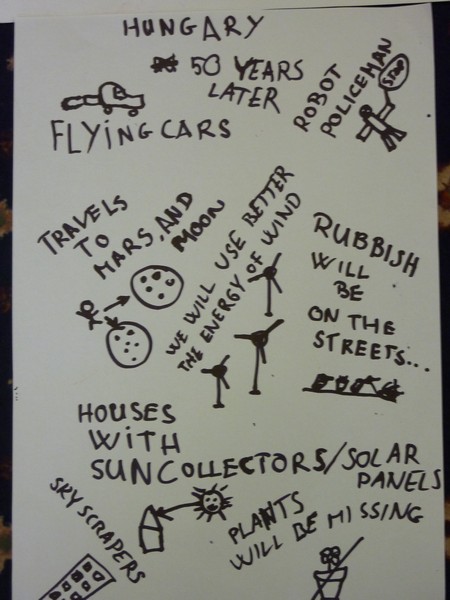 HUNGARY
50 YEARS
LATER
FLYING CARS
ROBOT
POLICEMAN
STOP
TRAVELS
TO
MARS, AND
MOON
WE WILL USE BETTER
THE ENERGY OF WIND
RUBBISH
WILL
BE
ON THE
STREETS...
HOUSES
WITH
SUNCOLLECTORS/SOLAR
PANELS
SKYSCRAPERS
PLANTS
WILL BE MISSING